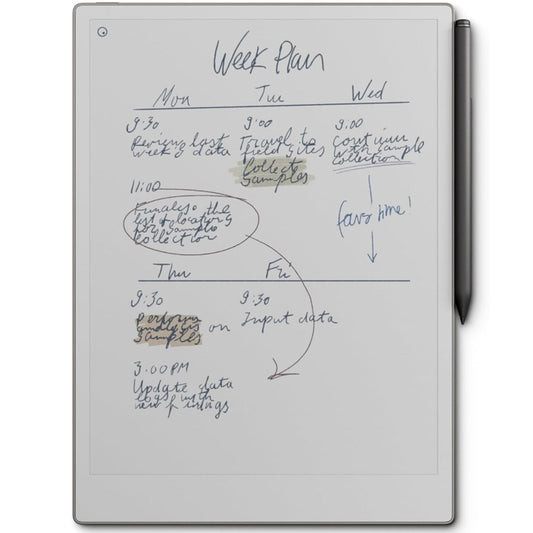 Week Plan
Mon Tue Wed
9:30
Review last
week's data
9:00
Travel to
field sites
Collect
samples
9:00
Continue
with sample
collection
11:00
Finalise the
list of locations
for sample
collection
fav time!
Thu Fri
9:30
Perform
analysis on
samples
9:30
Input data
3:00PM
Update data
logs with
new findings